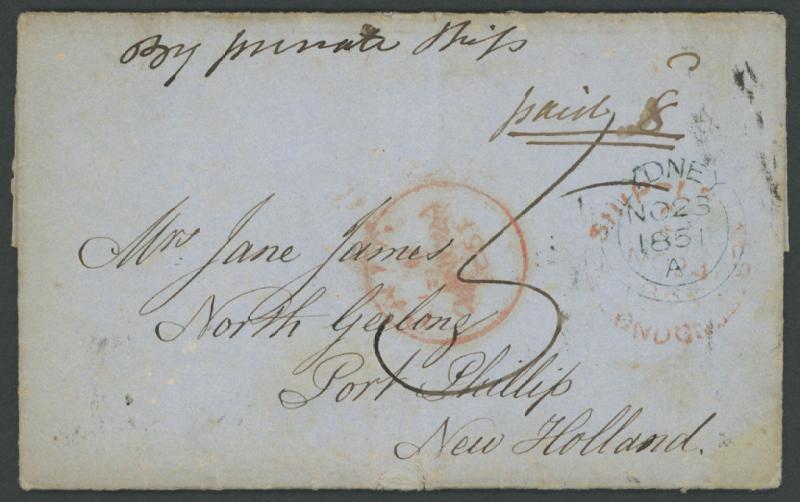 By private Ship
paid 8
5
Mrs Jane James
North Geelong
Port Phillip
New Holland.
SYDNEY
NO 23
1851
A
SHIP
LONDON